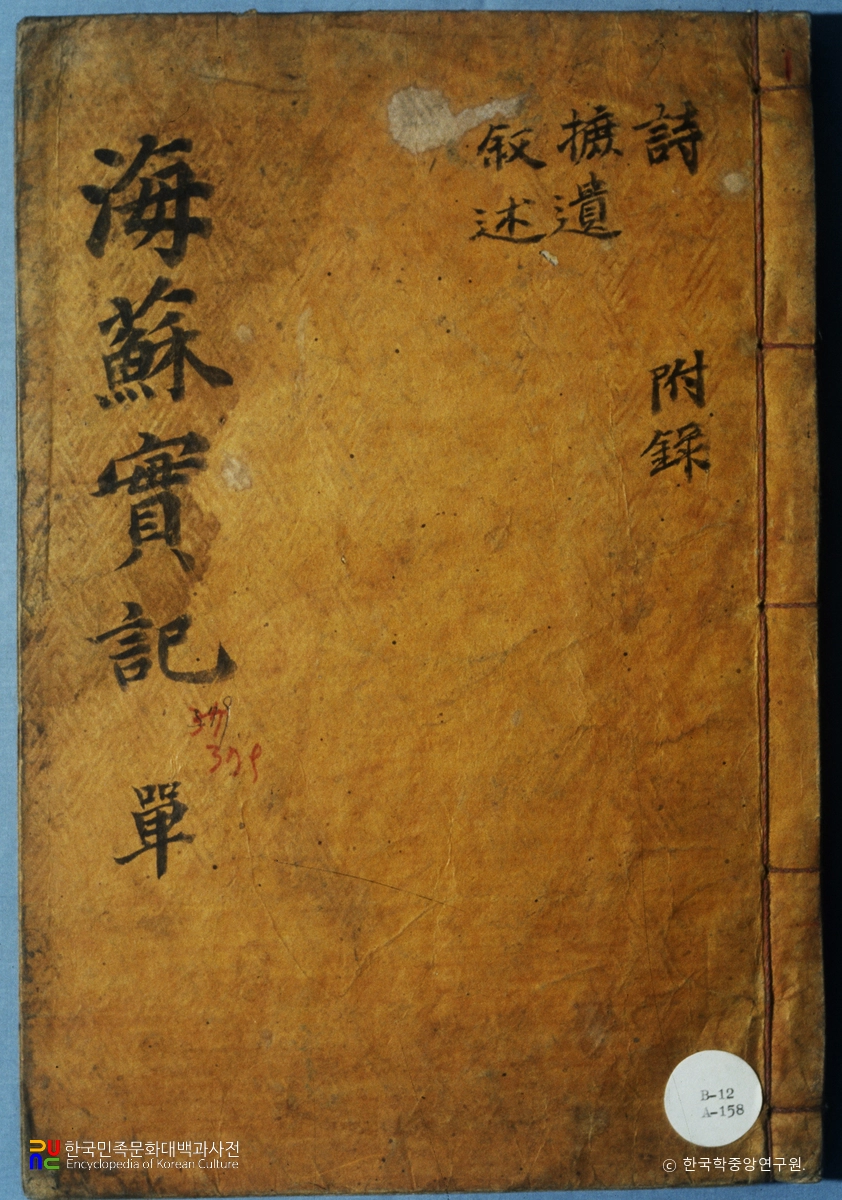 詩 附錄
摭遺
敘述
海蘇實記 單
B-12
A-158
한국민족문화대백과사전
Encyclopedia of Korean Culture
© 한국학중앙연구원